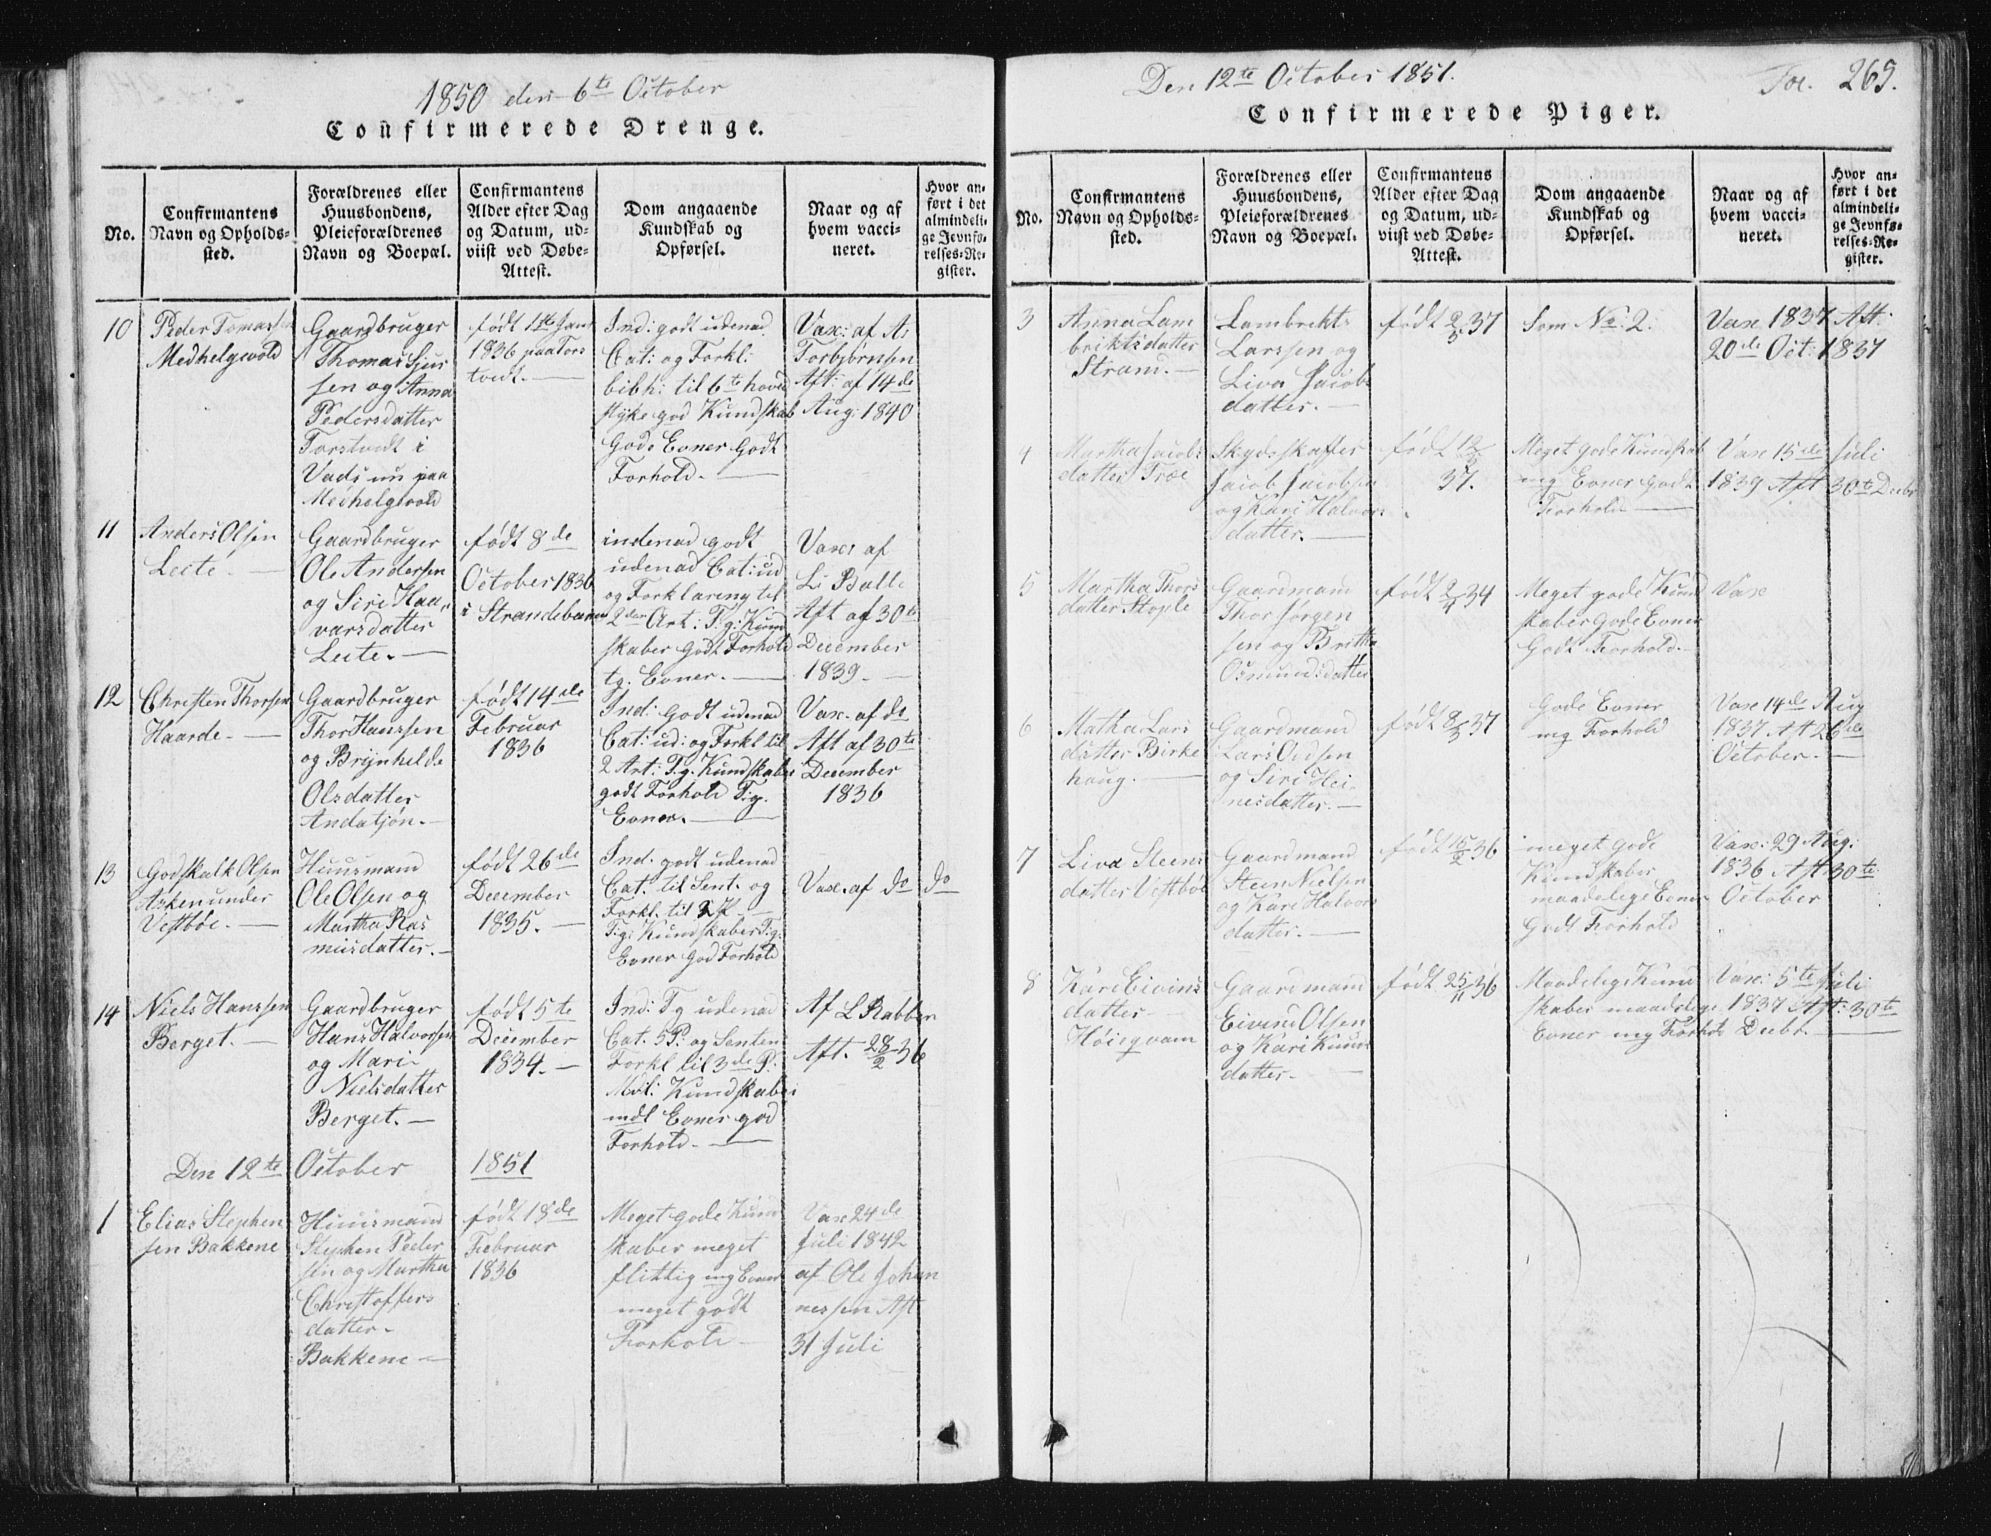 1850 den 6te October
Confirmerede Drenge.
No.
Confirmantens
Navn og Opholds-
sted.
Forældrenes eller
Huusbondens,
Pleieforældrenes
Navn og Boepæl.
Confirmantens
Alder efter Dag
og Datum, ud-
viist ved Døbe-
Attest.
Dom angaaende
Kundskab og
Opførsel.
Naar og af
hvem vacci-
neret.
Hvor an-
ført i det
almindeli-
ge Jevnfø-
relses-Re-
gister.
10
Peder Tomassen
Medhelgvold
Gaardbruger
Thomas
sen og Anna
Pedersdatter
Torstvedt i
Vads nu paa
Medhelgvold
født 1te Janr
1836 paa Tors
tvedt. —
Ind: godt udenad
Cat: og Forkl:
bibh: til 6te hoved
stÿke god Kundskab
Gode Evner Godt
Forhold. —
Vax: af As
Torbjørnsen
Aft: af 14de
Aug: 1840
11
Anders Olsen
Leite. —
Gaardbruger
Ole Andersen
og Siri Haa-
varsdatter
Leite. —
født 8de
October 1836
i Strandebarm
indenad godt
udenad Cat: ud
og Forklareng til
2den Art: T.g: Kund
skaber Godt Forhold
tg. Evner. —
Vaxs af
Li Balle
Aft af 30te
December
1839. —
12
Christen Thorsen
Haarde —
Gaardbruger
Thor Hanssen
og Brÿnhilde
Olsdatter
Andatjøn. —
født 14de
Februar
1836
Ind: godt udenad
Cat: ud: og Forkl til
2 Art: T.g. Kundskaber
godt Forhold T.g.
Evner. —
Vax. af do
Aft af 30te
December
1836
13
Godskalk Olsen
Asken under
Vestbøe. —
Huusmand
Ole Olsen og
Martha Ras
musdatter. —
født 26de
December
1835. —
Ind. godt udenad
Cat. til Sent. og
Forkl. til
T.g: Kundskaber T.g:
Evner God Forhold
Vax. af do
do
14
Niels Hanssen
Berget. —
Gaardbruger
Hans Halvorsen
og Mari
Nielsdatter
Berget. —
født 5te
December
1834. —
Ind: Tg udenad
Cat. 5 P: og Senten
Forkl til 3de P:
Mdl: Kundskaber
mdl Evner god
Forhold. —
Af L Rabben
Aft. 28/2 36
Den 12te October 1851
1
Elias Stephen
sen Bakkene
Huusmand
Stephen Peder
sen og Martha
Christoffers
datter -
Bakkene —
født 18de
Februar
1836
Meget gode Kund
skaber meget
flittig mg Evner
meget godt
Forhold —
Vax 24de
Juli 1842
af Ole Johan
nessen Aft
31 Juli
Den 12te October 1851.
For. 265.
Confirmerede Piger.
No.
Confirmantens
Navn og Opholds-
sted.
Forældrenes eller
Huusbondens,
Pleieforældrenes
Navn og Boepæl.
Confirmantens
Alder efter Dag
og Datum, ud-
viist ved Døbe-
Attest.
Dom angaaende
Kundskab og
Opførsel.
Naar og af
hvem vacci-
neret.
Hvor an-
ført i det
almindeli-
ge Jevnfø-
relses-Re-
gister.
3
Anna Lam
briktsdatter
Strand. —
Lambrekts
Larssen og
Liva Jacobs
datter. —
født 2/5 37
Som No. 2.
Vax 1837 Aft:
20de Oct: 1837
4
Martha Jacobs
datter Træe
Skydsskaffer
Jacob Jacobsen
og Kari Halvors
datter. —
født 12/5
37.
Meget gode Kundskab
mg Evner Godt
Forhold —
Vax 15de Juli
1839 Aft 30te Decbr
5
Martha Thors
datter Stople
Gaardmand
Thor Jørgen
sen og Britha
Osmundsdatter
født 2/4 34
Meget gode Kund
skaber Gode Evner
Godt Forhold. —
Vax
6
Matha Lars
datter Birke
haug. —
Gaardmand
Lars Oidsen
og Siri Hei-
nesdatter. —
født 8/3 37
Gode Evner
mg Forhold
Vax 14de Aug
1837 Aft 26de
October. —
7
Liva Steens
datter Vestbøe
Gaardmand
Steen Nielsen
og Kari Halvors
datter. —
født 15/2 36
meget gode
Kundskaber
maadelege Evner
Godt Forhold
Vax: 29 Aug:
1836 Aft: 30te
October
8
Kari Eivins
datter —
Høieqvam
Gaardmand
Eivind Olsen
og Kari Knuds
datter. —
født 25/11 36
Maadelege Kund
skaber maadelege
Evner mg Forhold
Vax: 5te Juli
1837 Aft: 30te
Decbr. —